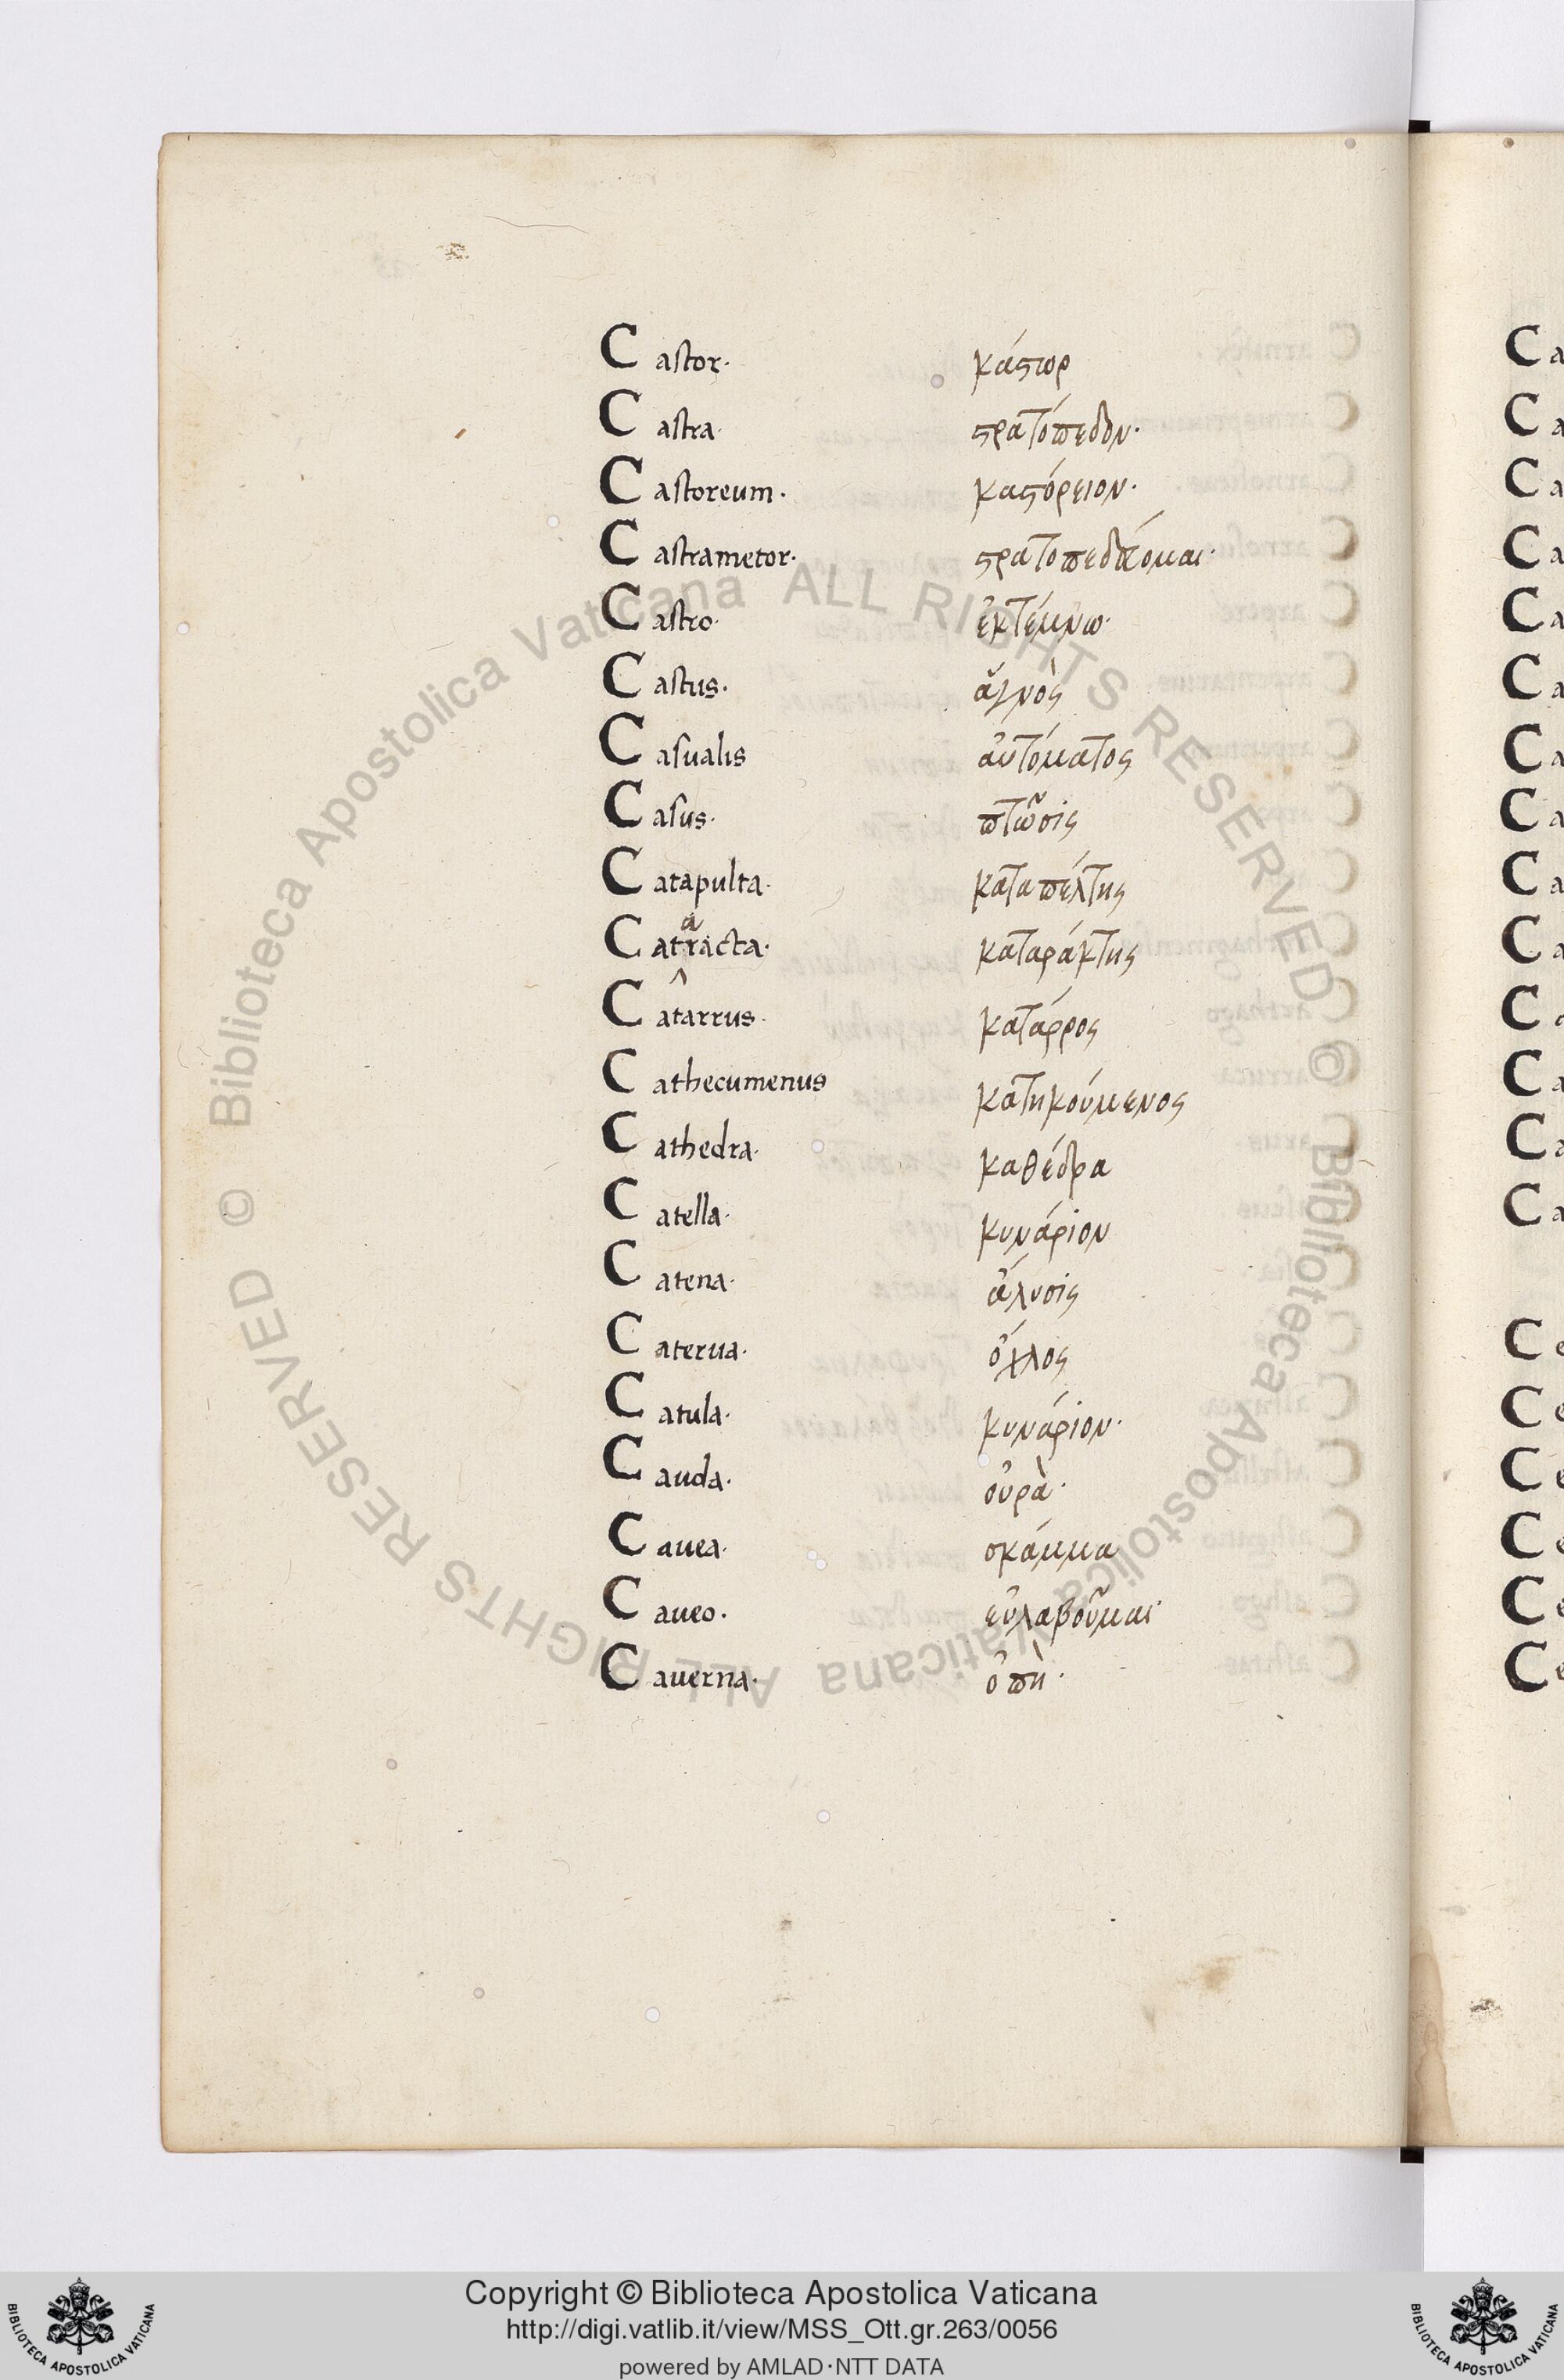 Castor· κάστωρ
Castra· στρατόπεδον·
Castoreum· καστόρειον·
Castrametor· στρατοπεδεύομαι·
Castro· ἐκτέμνω·
Castus· ἁγνὸς
Casualis αὐτόματος
Casus· πτῶσις
Catapulta· καταπέλτης
Catracta· καταράκτης
a
Catarrus· κατάρρος
Cathecumenus κατηκούμενος
Cathedra· καθέδρα
Catella· κυνάριον
Catena· ἅλυσις
Caterua· ὄχλος
Catula· κυνάριον·
Cauda· οὐρὰ·
Cauea· σκάμμα
Caueo· εὐλαβοῦμαι·
Cauerna· ὀπὴ·
© Biblioteca Apostolica Vaticana ALL RIGHTS RESERVED © Biblioteca Apostolica Vaticana ALL RIGHTS RESERVED
Copyright © Biblioteca Apostolica Vaticana
http://digi.vatlib.it/view/MSS_Ott.gr.263/0056
powered by AMLAD·NTT DATA
BIBLIOTECA APOSTOLICA VATICANA
BIBLIOTECA APOSTOLICA VATICANA